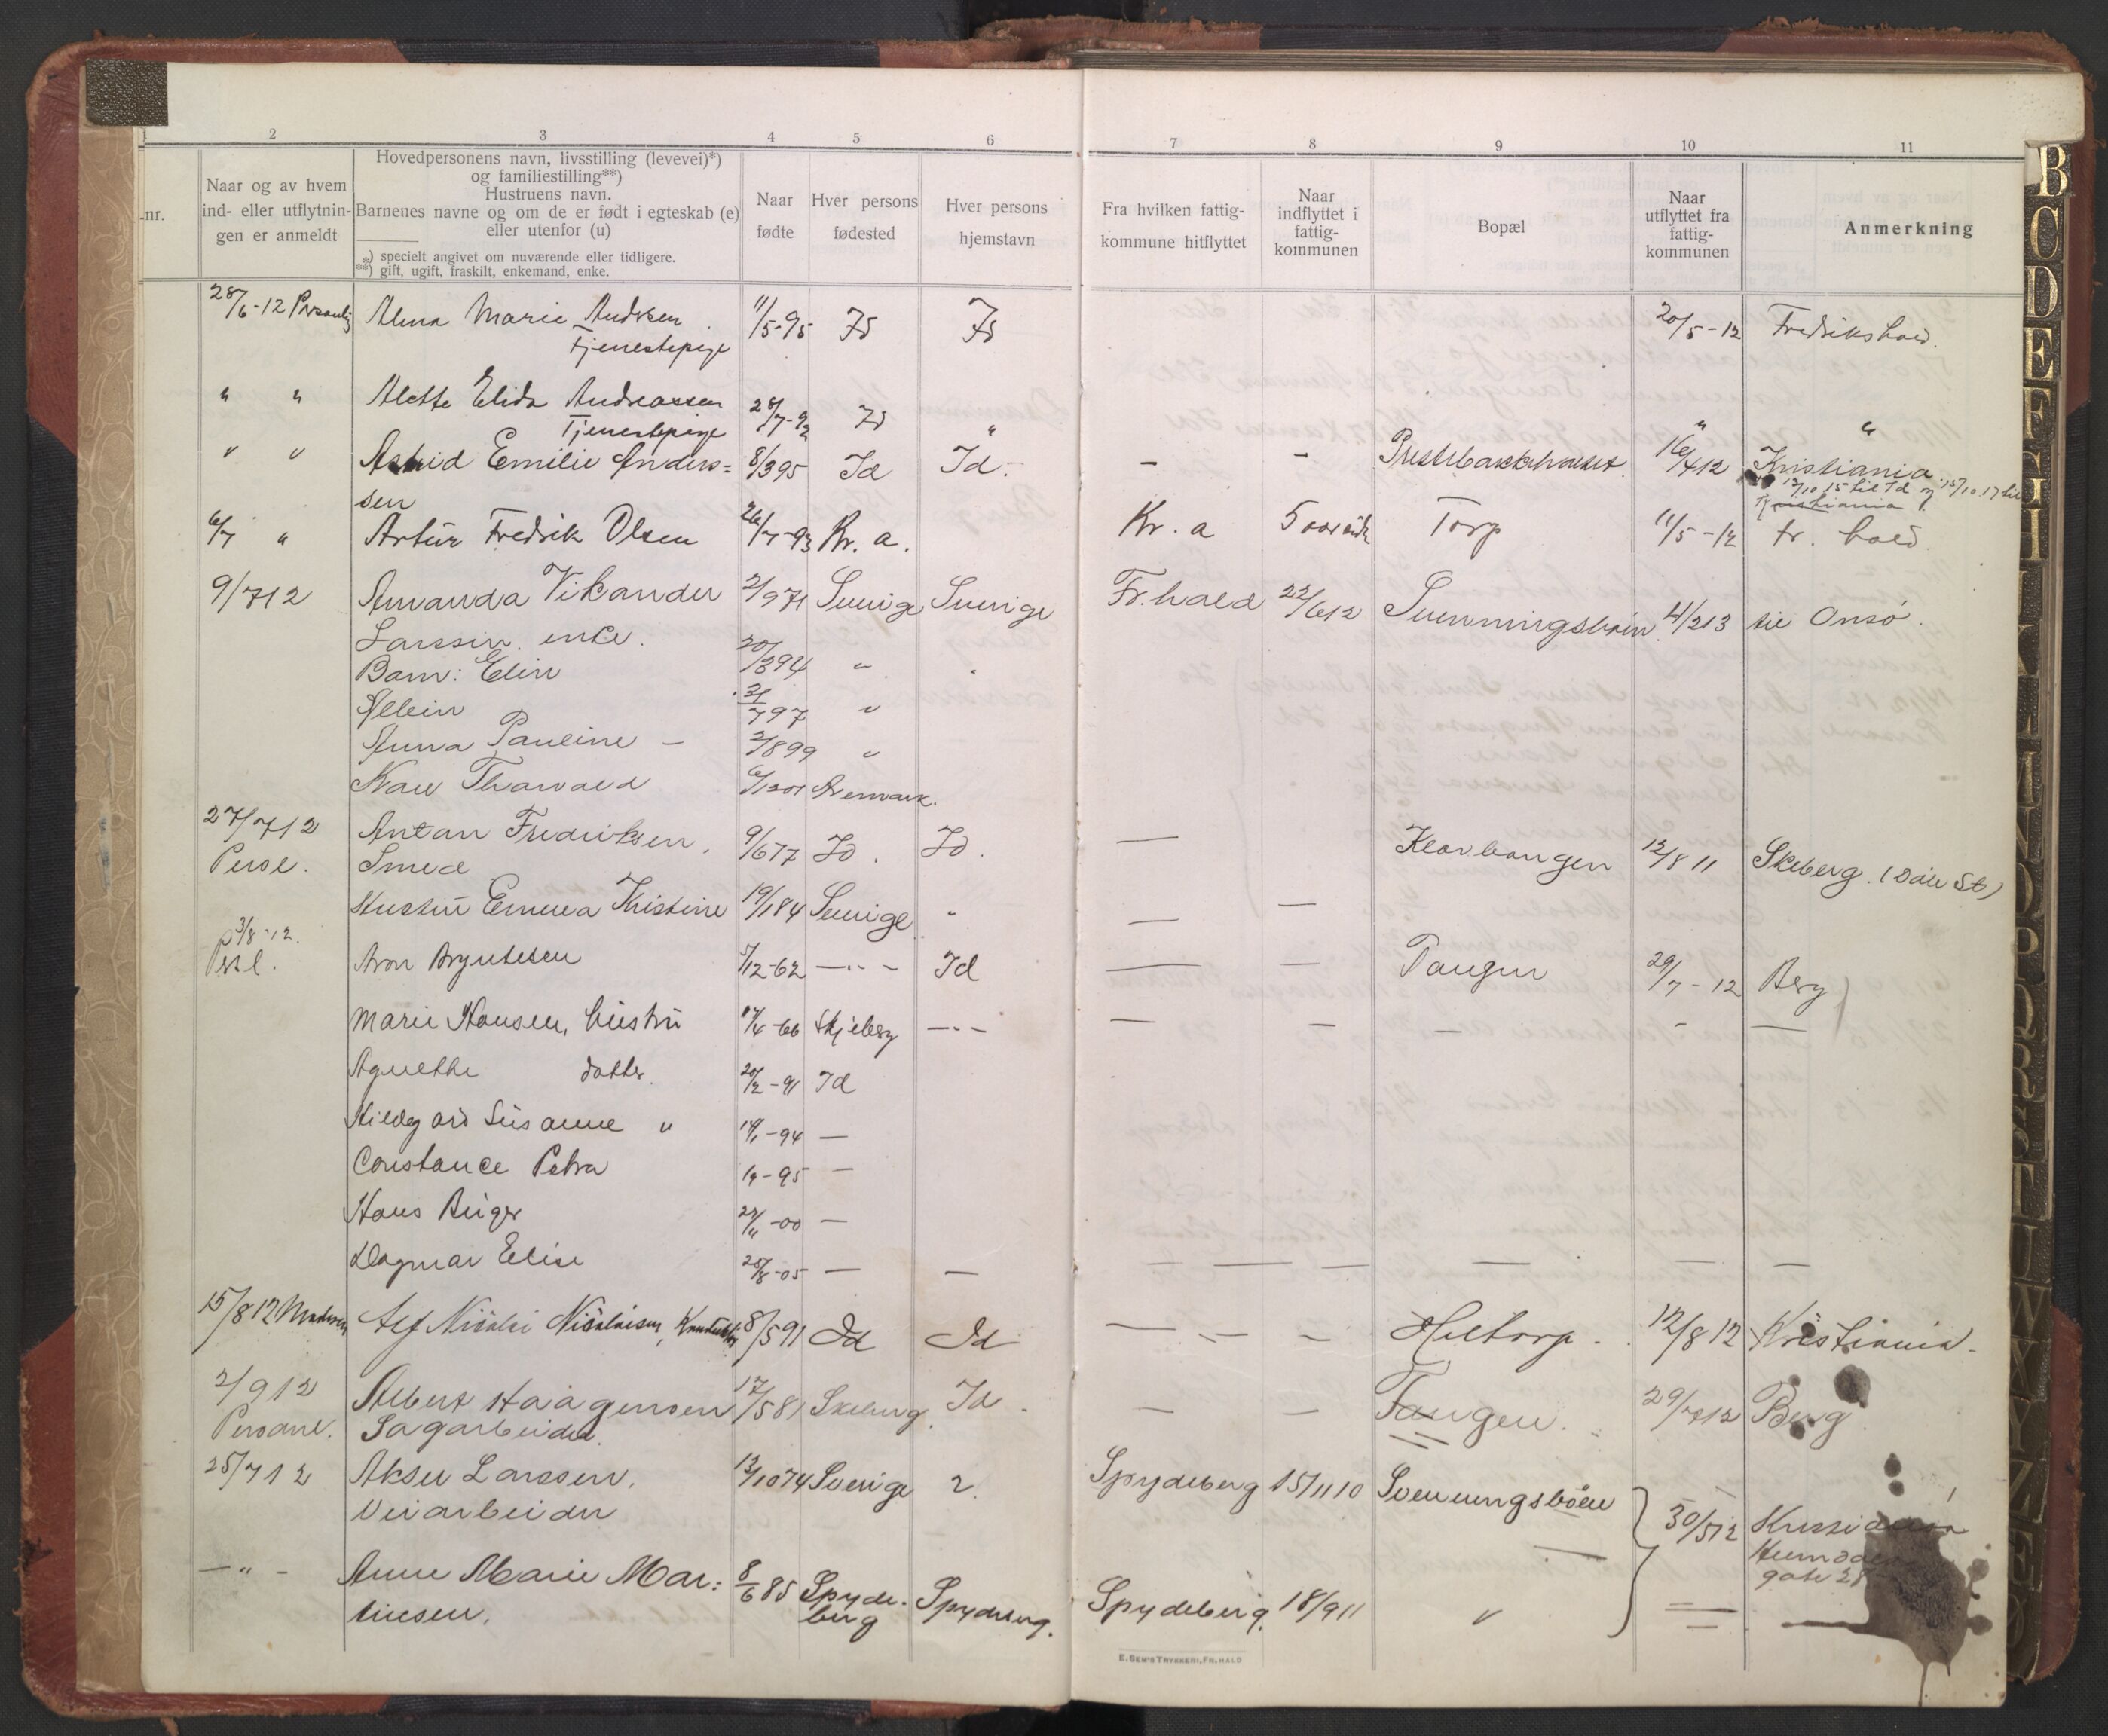 1 2 3 4 5 6 7 8 9 10 11
.nr.
Naar og av hvem
ind- eller utflytnin-
gen er anmeldt
Hovedpersonens navn, livsstilling (levevei)*)
og familiestilling**)
Hustruens navn.
Barnenes navne og om de er født i egteskab (e)
eller utenfor (u)
*) specielt angivet om nuværende eller tidligere.
**) gift, ugift, fraskilt, enkemand, enke.
Naar
fødte
Hver persons
fødested
Hver persons
hjemstavn
Fra hvilken fattig-
kommune hitflyttet
Naar
indflyttet i
fattig-
kommunen
Bopæl
Naar
utflyttet fra
fattig-
kommunen
Anmerkning
28/6-12 Personlig Alma Marie Andrsen 11/5-95 Id Id 20/5-12 Fredrikshald.
Tjenestepige
" " Alette Elida Andreassen 28/7-92 Id " " "
Tjenestepige
" " Astrid Emilie Anders= 8/395 Id Id. - - Prestebakkehalset 16/412 Kristiania
sen 12/10 15 til Id og 15/10.17 til
Kristiania
6/7 " Artur Fredrik Olsen 26/7-93 Kr. a. Kr. a Torp 11/5-12 fr. hald.
9/712 Amanda Vikander 2/971 Sverige Sverige Fr.hald 22/612 Svenningsbøen 4/213 til Onsø.
Larssen. enke.
Barn: Elin 20/394 "
21/797 "
Anna Pauline - 2/899 "
Karl Thorvald 6/1201 Aremark.
27/712 Anton Fredriksen. 9/677 Id. Id. — Klovbangen 12/8 11 Skeberg. (Dale St)
Persl. Smed
Hustru Emma Kristine 19/184 Sverige " — —
3/8-12.
Persl. Aron Bryntesen 5/12-62 —"— Id — — Tangen 29/7-12 Berg
Marie Hansen, hustru 17/4-66 Skjeberg —"— — — — — —
Agnethe datter. 20/2-91 Id
Hildegard Susanne " 19/1-94 —
Constance Petra 19-95 —
Hans Birger 27/11-00 —
Dagmar Elise 25/8-05 — — — — — — — —
15/8 12 Alf Nicolai Nicolaisen, Konduktør 8/591 Id Id — — — Hiltorp. 12/8 12 Kristiania.
2/912 Albert Haagensen 17/581 Skeberg. Id. — — Tangen. 29/712 Berg
Personl. Sagarbeider.
25/712 Aksel Larssen. 13/1074 Sverige ?. Spydeberg 15/1110 Svenningsbøen 30/512 Kristiania
Veiarbeider
gate 28
—"— Anne Marie Mar= 8/6 85 Spyde- Spydeberg. Spydeberg. 18/911 "
tinsen. berg
E. SEM'S TRYKKERI, FR.HALD
B
C
D
E
F
G
I
K
M
N
O
P
Q
R
S
T
U
W
X
Y
Z
Ø